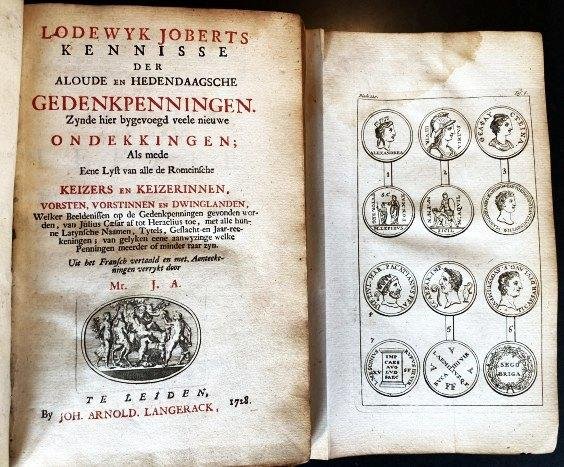 LODEWYK JOBERTS
KENNISSE
DER
ALOUDE EN HEDENDAAGSCHE
GEDENKPENNINGEN.
Zynde hier bygevoegd veele nieuwe
ONDEKKINGEN;
Als mede
Eene Lyst van alle de Romeinsche
KEIZERS EN KEIZERINNEN,
VORSTEN, VORSTINNEN EN DWINGLANDEN,
Welker Beeldenissen op de Gedenkpenningen gevonden wor-
den, van Julius Cæsar af tot Heraclius toe, met alle hun-
ne Latynsche Naamen, Tytels, Geslacht-en Jaar-ree-
keningen; van gelyken eene aanwyzinge welke
Penningen meerder of minder raar zyn.
Uit het Fransch vertaald en met Aanteeke-
ningen verrykt door
Mr. J. A.
TE LEIDEN,
By JOH. ARNOLD. LANGERACK, 1728.
ALEXANDREA
1
2
3
S. C.
M. LEPIDVS
AQVIL
SICIL
5
6
6
7
IMP
CAES
AVG
LVD
SAEC
XV
SF
FF
SEGO
BRIGA